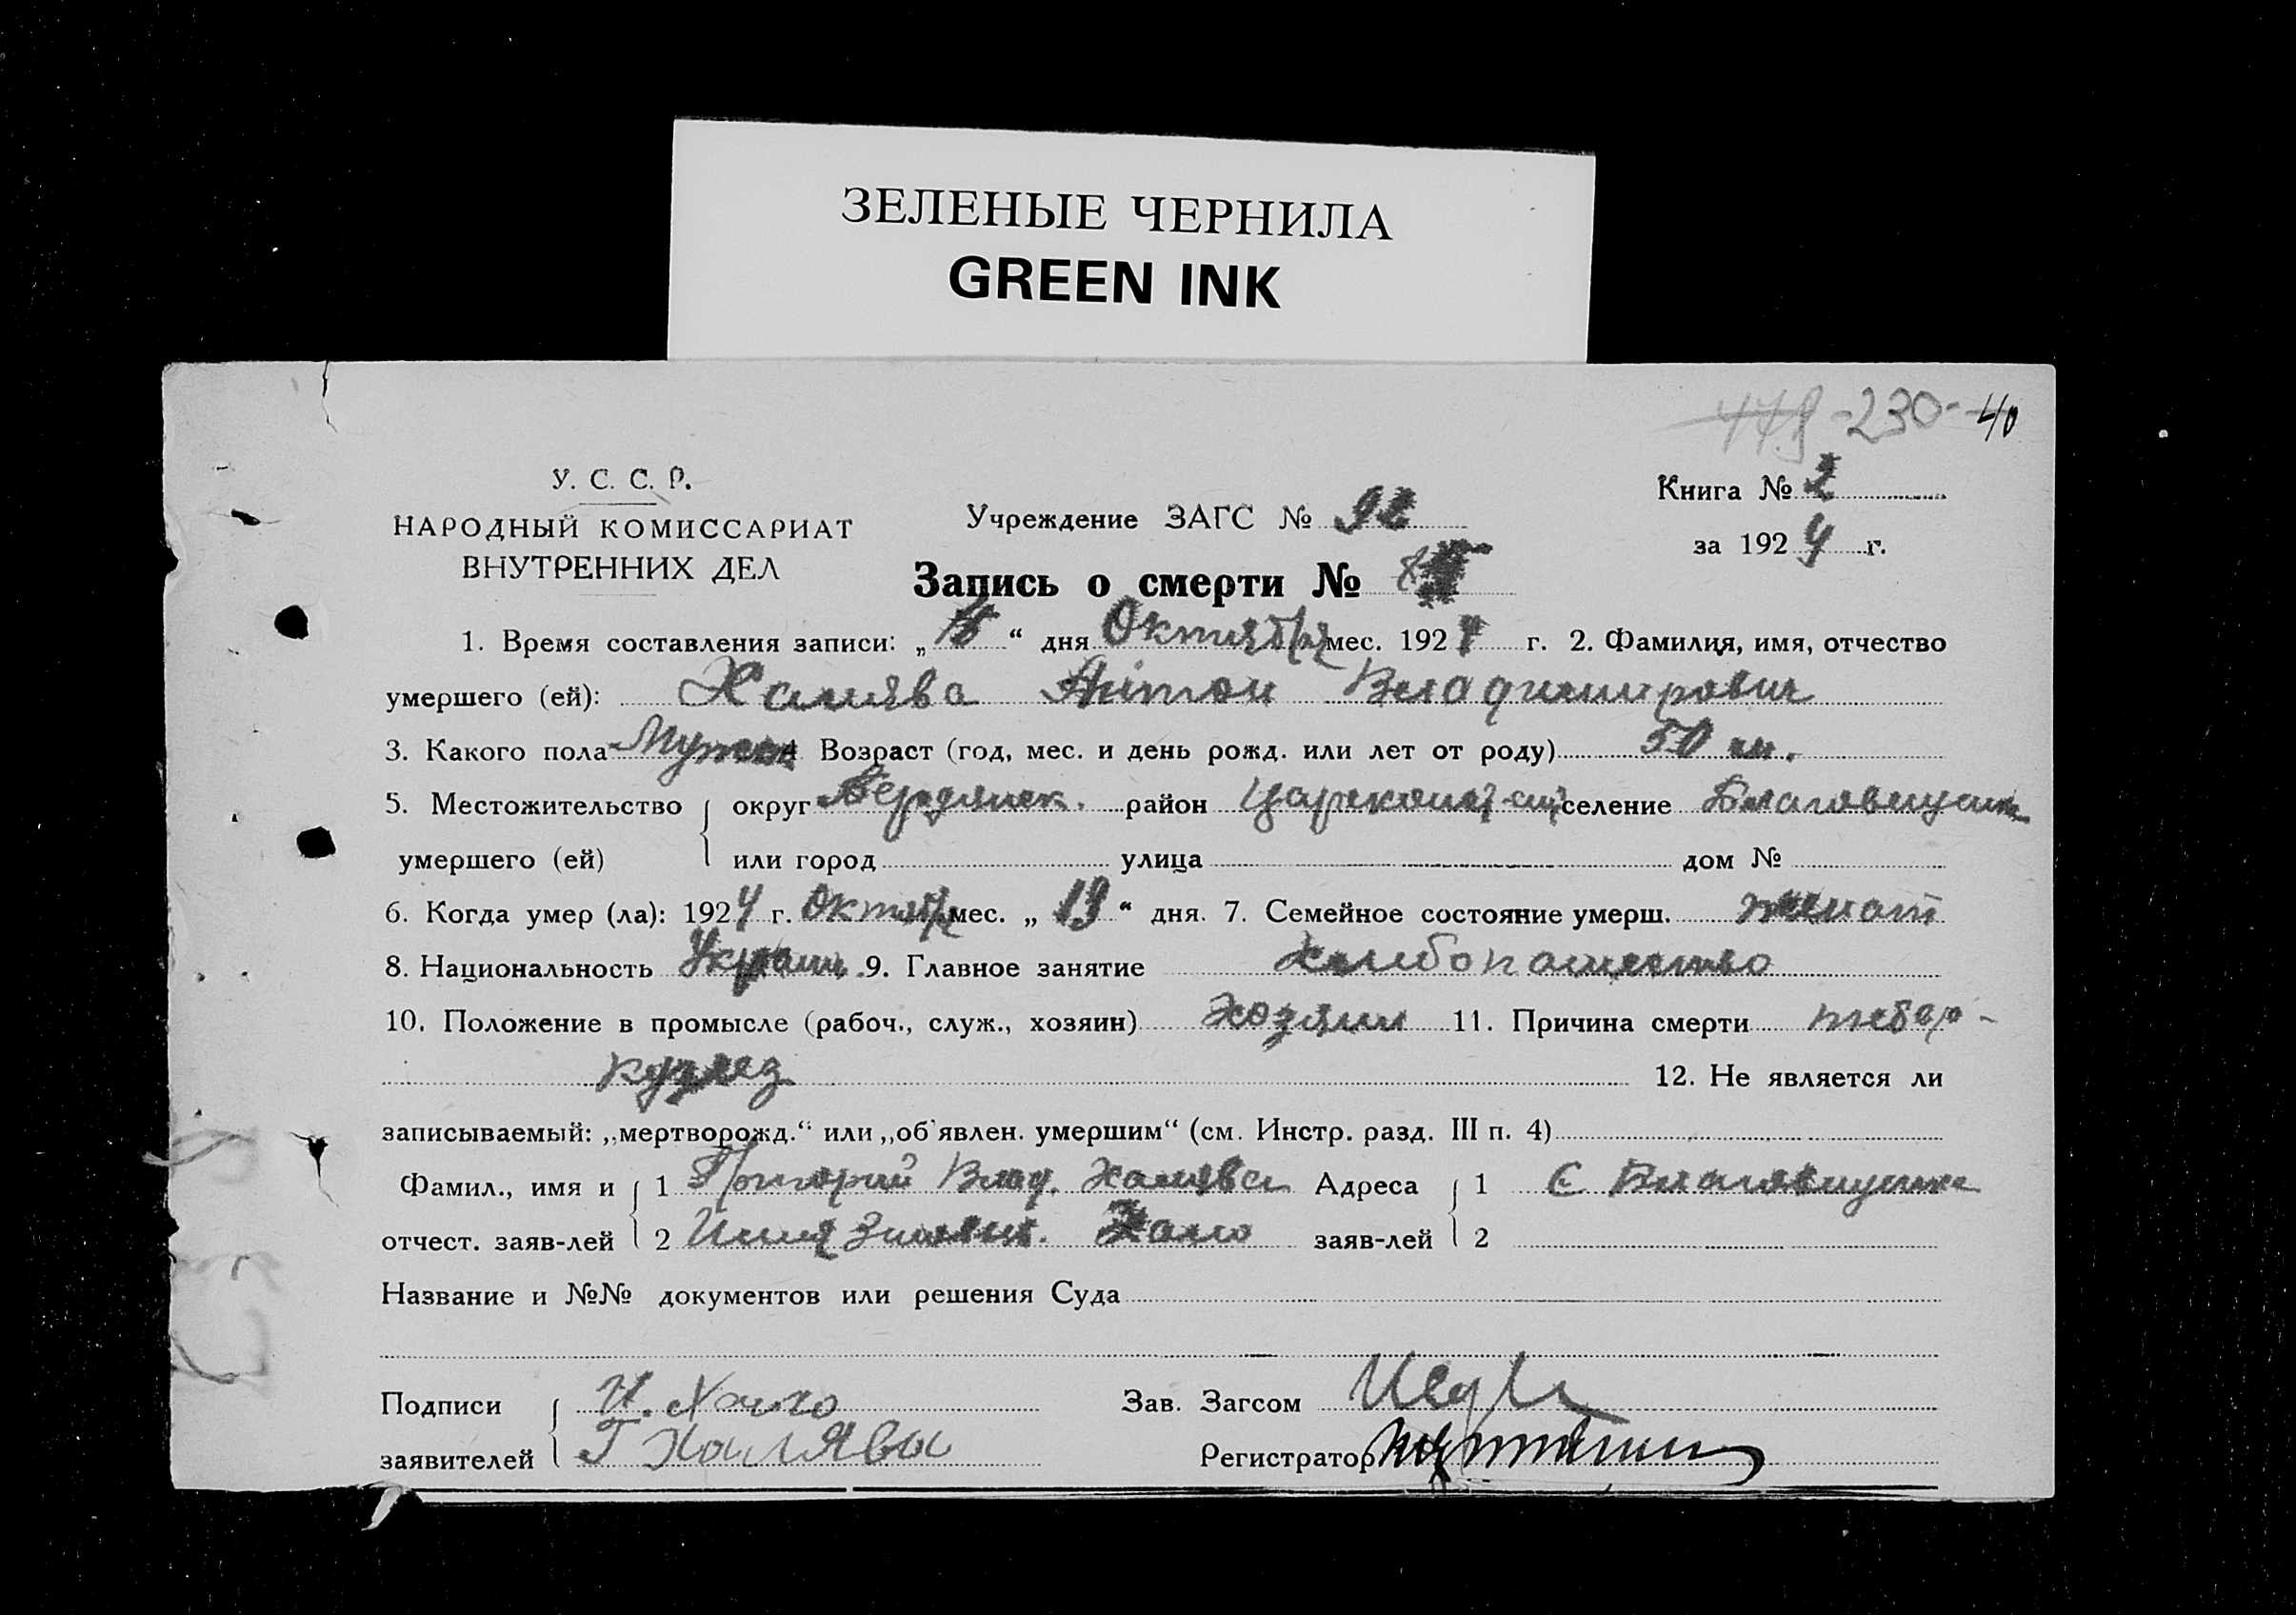 ЗЕЛЕНЫЕ ЧЕРНИЛА
GREEN INK
-230- 40
У. С. С. Р.
НАРОДНЫЙ КОМИССАРИАТ
ВНУТРЕННИХ ДЕЛ
Учреждение ЗАГС № 92
Книга № 2
за 1924 г.
Запись о смерти №
1. Время составления записи: „ “ дня Октября мес. 1924 г. 2. Фамилия, имя, отчество
умершего (ей): Халява Антон Владимирович
3. Какого пола Мужск 4 Возраст (год, мес. и день рожд. или лет от роду) 50 л.
5. Местожительство округ Бердянск. район Цареконст-ский селение Благовещенка
умершего (ей) или город улица дом №
6. Когда умер (ла): 1924 г. Октября мес. „ 13 “ дня. 7. Семейное состояние умерш. женат
8. Национальность Украин. 9. Главное занятие хлебопашество
10. Положение в промысле (рабоч., служ., хозяин) хозяин 11. Причина смерти тубер-
кулез
12. Не является ли
записываемый: „мертворожд.“ или „об'явлен. умершим“ (см. Инстр. разд. III п. 4)
Фамил., имя и 1 Григорий Влад. Халява Адреса 1 С Благовещенка
отчест. заяв-лей 2 Хало заяв-лей 2
Название и №№ документов или решения Суда
Подписи И. Хало Зав. Загсом
заявителей Г Халява Регистратор